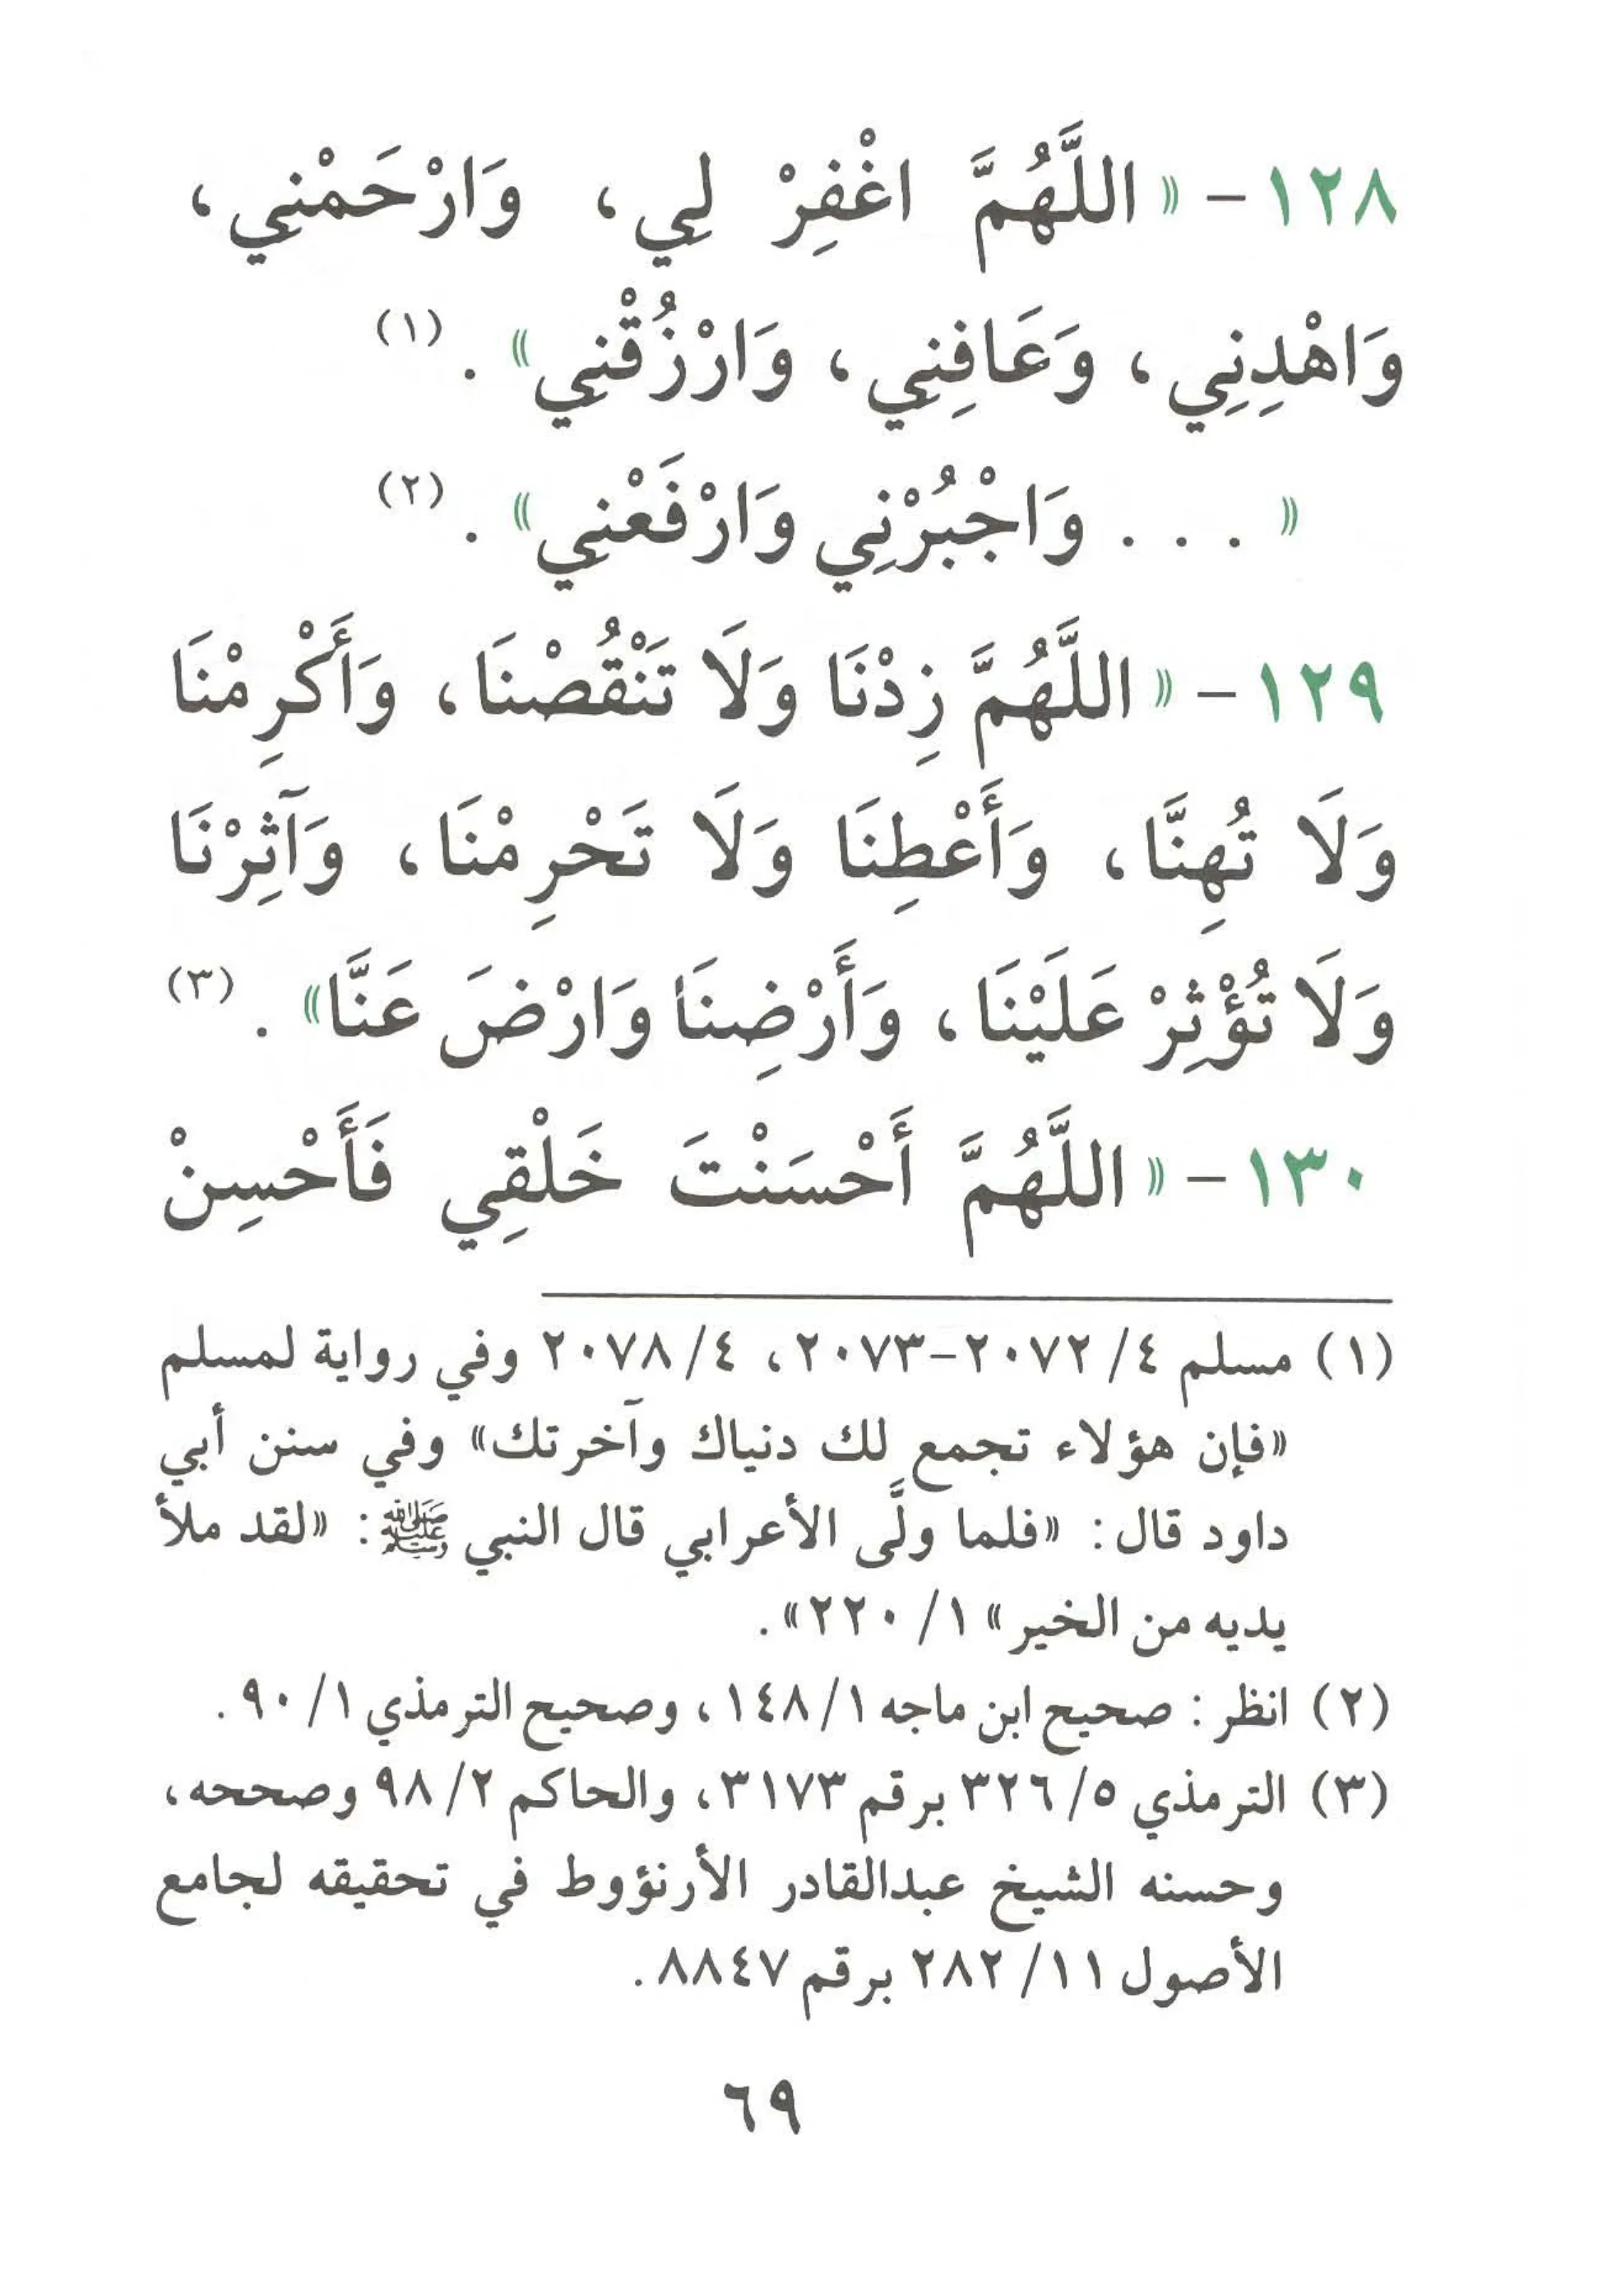 ١٢٨ - «اللَّهُمَّ اغْفِرْ لِي، وَارْحَمْنِي،
وَاهْدِنِي، وَعَافِنِي، وَارْزُقْنِي». (١)
«... وَاجْبُرْنِي وَارْفَعْنِي». (٢)
١٢٩ - «اللَّهُمَّ زِدْنَا وَلَا تَنْقُصْنَا، وَأَكْرِمْنَا
وَلَا تُهِنَّا، وَأَعْطِنَا وَلَا تَحْرِمْنَا، وَآثِرْنَا
وَلَا تُؤْثِرْ عَلَيْنَا، وَأَرْضِنَا وَارْضَ عَنَّا». (٣)
١٣٠ - «اللَّهُمَّ أَحْسَنْتَ خَلْقِي فَأَحْسِنْ
(١) مسلم ٤/ ٢٠٧٢-٢٠٧٣، ٤/ ٢٠٧٨ وفي رواية لمسلم
«فإن هؤلاء تجمع لك دنياك وآخرتك» وفي سنن أبي
داود قال: «فلما ولَّى الأعرابي قال النبي ﷺ: «لقد ملأ
يديه من الخير» ١/ ٢٢٠».
(٢) انظر: صحيح ابن ماجه ١/ ١٤٨، وصحيح الترمذي ١/ ٩٠.
(٣) الترمذي ٥/ ٣٢٦ برقم ٣١٧٣، والحاكم ٢/ ٩٨ وصححه،
وحسنه الشيخ عبدالقادر الأرنؤوط في تحقيقه لجامع
الأصول ١١/ ٢٨٢ برقم ٨٨٤٧.
٦٩